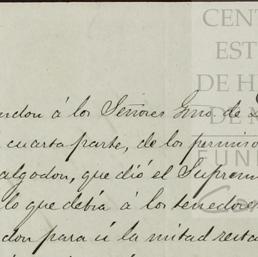 CEN
EST
DE H
DE M
FUN
ndon á los Señores Gmo. de
cuarta parte, de los permiso
algodon, que dió el Suprem
lo que debia á los tenedore
don para ú la mitad resta